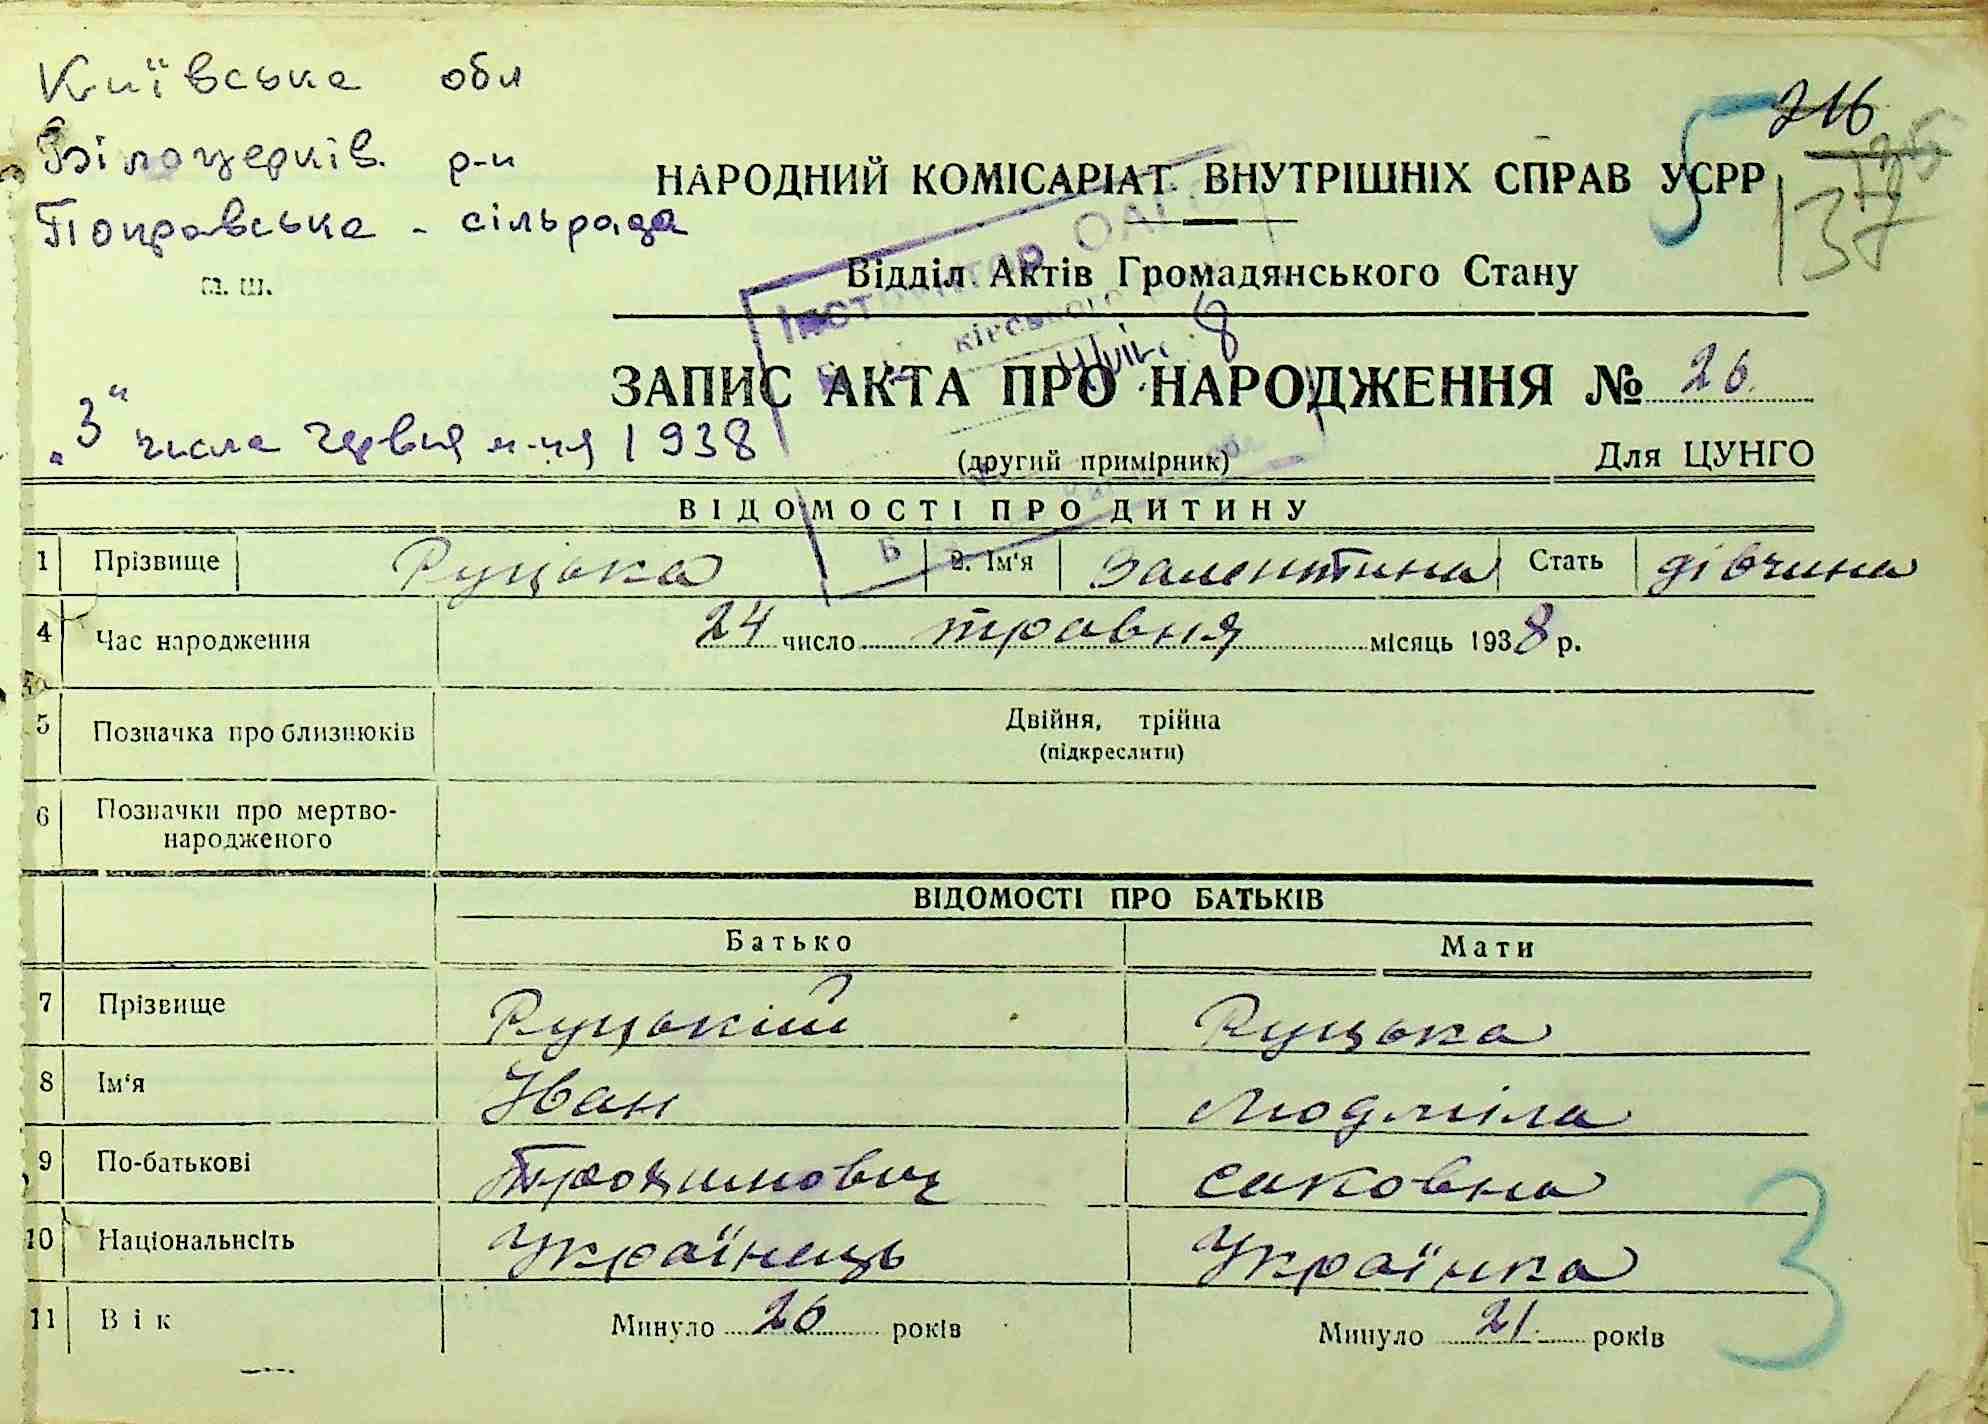 Київська обл
Білоцерків. р-н
Покравська - сільрада
М. Ш.
5 216
125
137
НАРОДНИЙ КОМІСАРІАТ ВНУТРІШНІХ СПРАВ УСРР
Відділ Актів Громадянського Стану
Інспектор ОАГС
ЗАПИС АКТА ПРО НАРОДЖЕННЯ № 26
„3“ числа червня м-ця 1938
(другий примірник) Для ЦУНГО
ВІДОМОСТІ ПРО ДИТИНУ
1 Прізвище Руцька 2. Ім'я Валентина Стать дівчина
4 Час народження 24 число травня місяць 1938 р.
5 Позначка про близнюків Двійня, трійна
(підкреслити)
6 Позначки про мертво-
народженого
ВІДОМОСТІ ПРО БАТЬКІВ
Батько Мати
7 Прізвище Руцький Руцька
8 Ім'я Іван Людміла
9 По-батькові Трохимович Саковна
10 Національнсіть Українець Українка
11 Вік Минуло 26 років Минуло 21 років
3